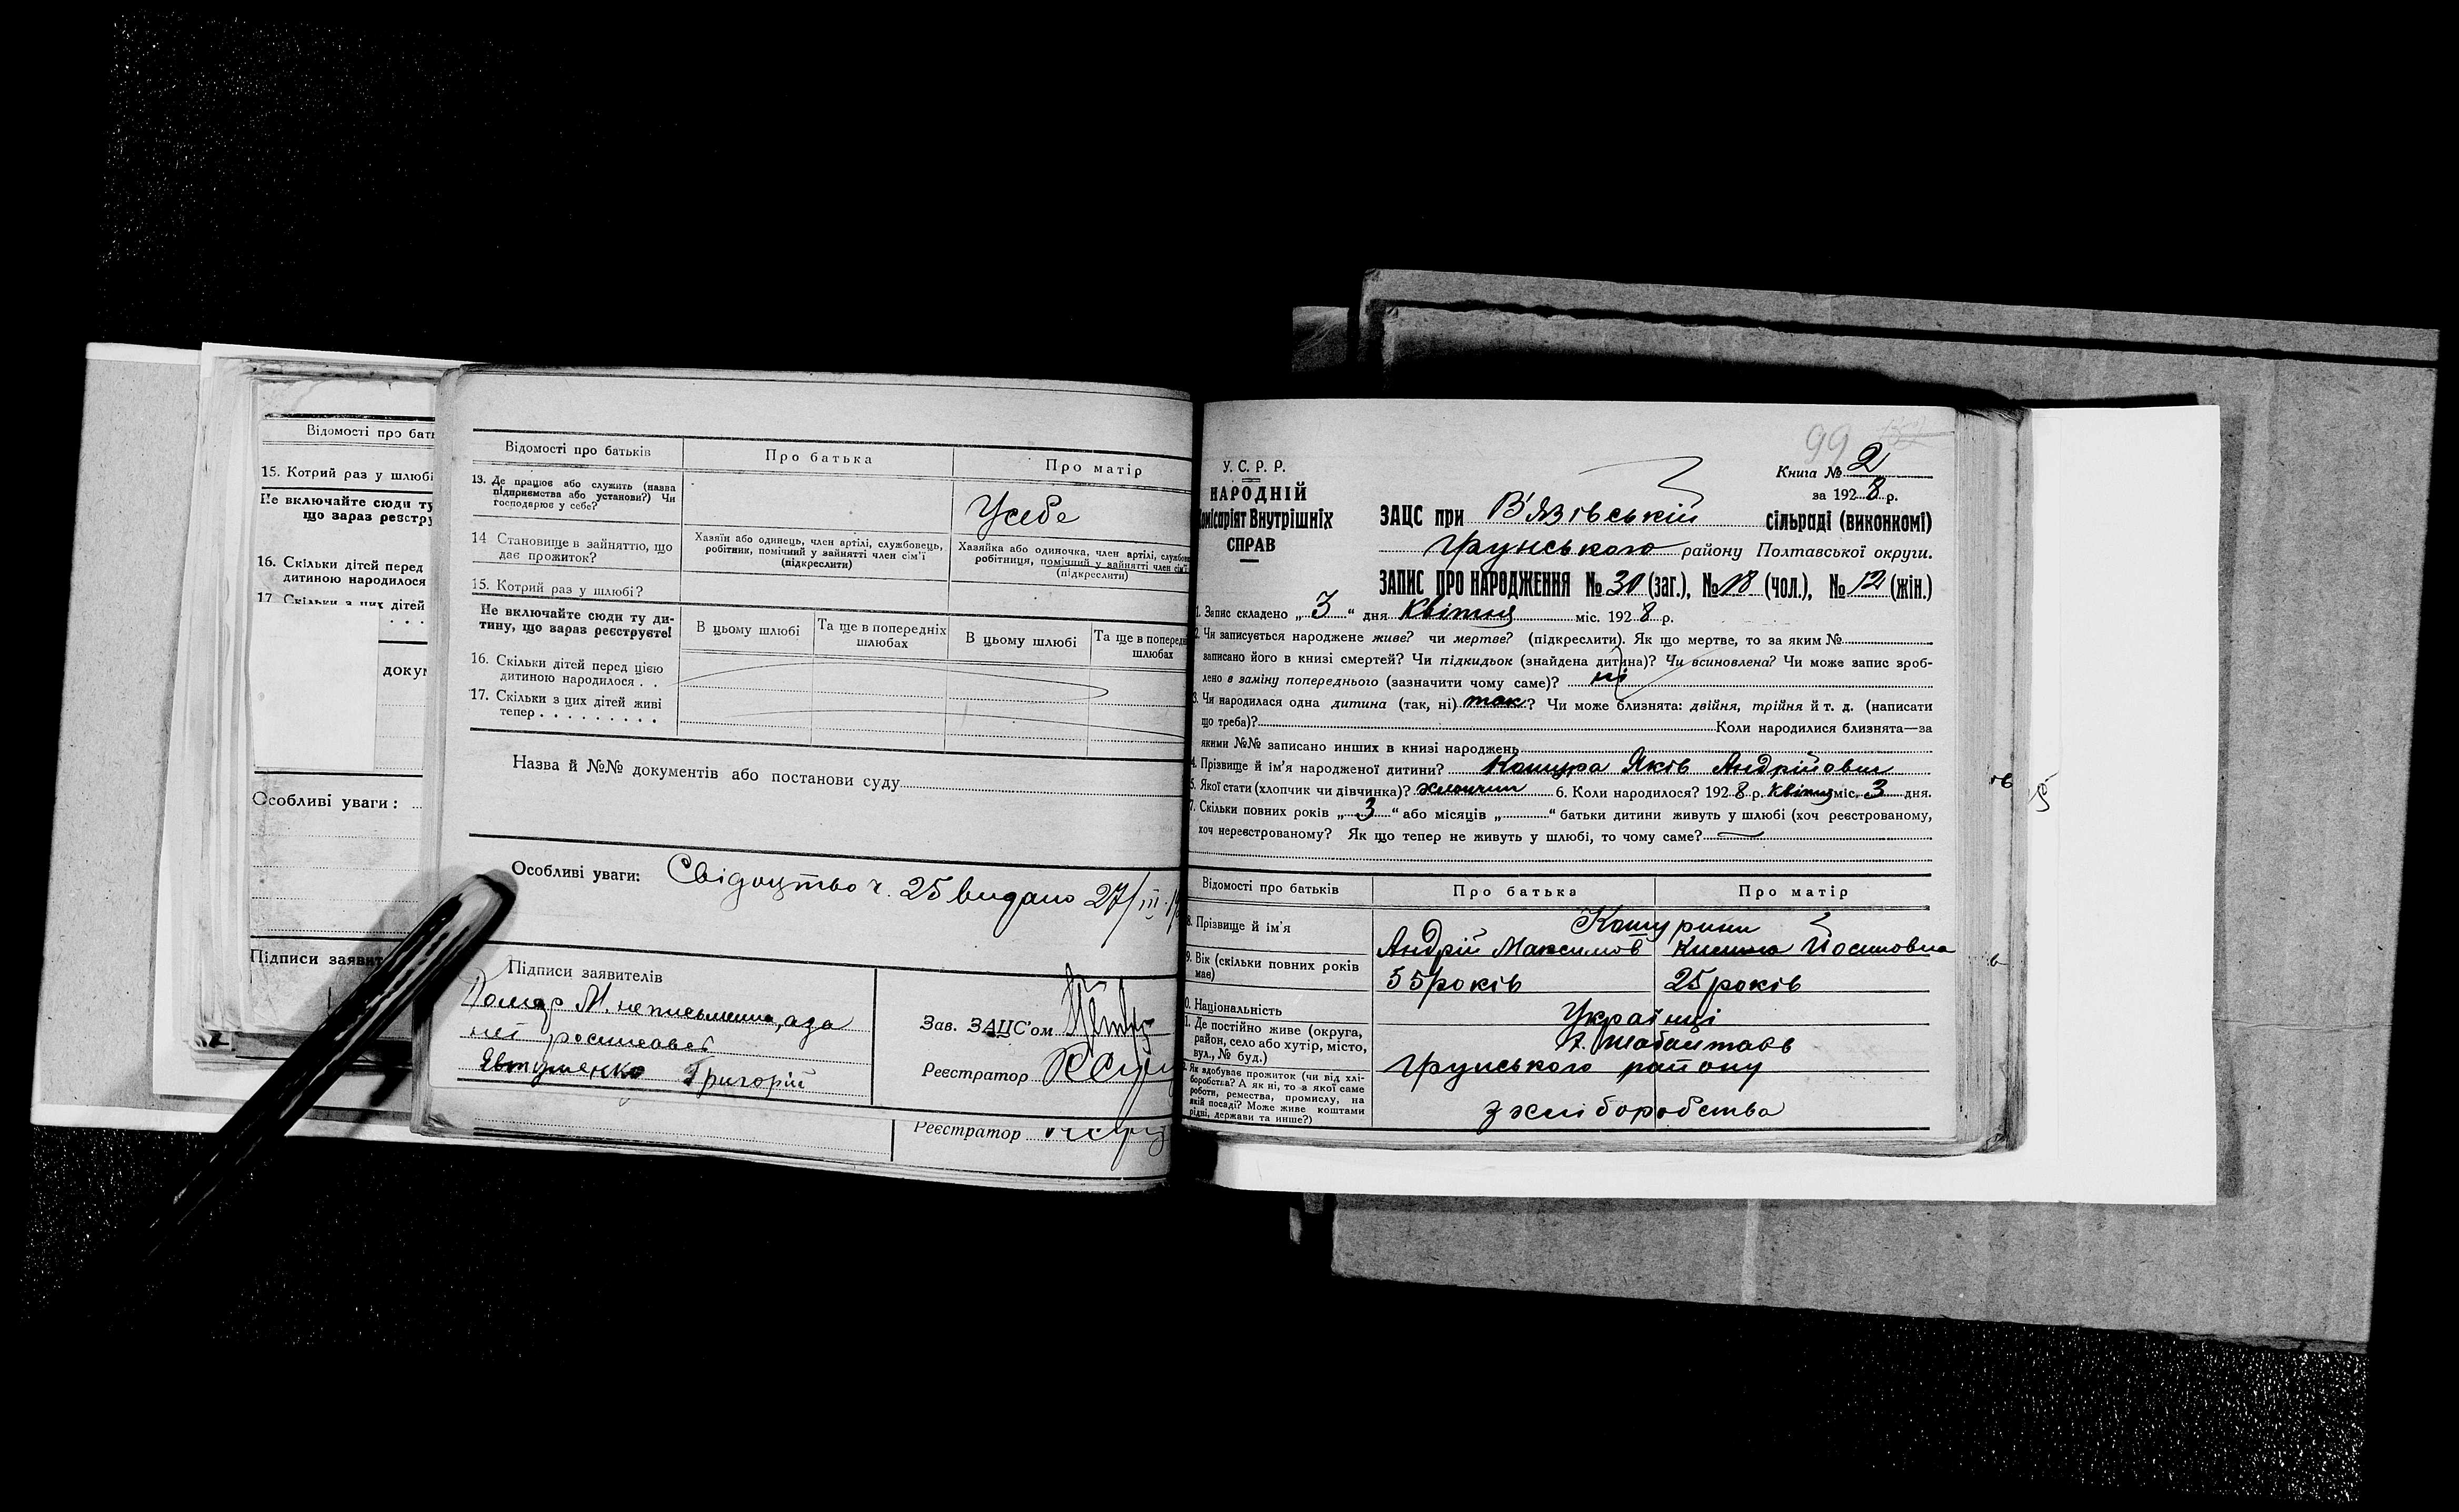 Відомості про бать
15. Котрий раз у шлюбі
Не включайте сюди ту
що зараз реєстру
16. Скільки дітей перед
дитиною народилося
17. Скільки з цих дітей
докум
Особливі уваги:
Підписи заявит
Відомості про батьків
Про батька
Про матір
13. Де працює або служить (назва
підприємства або установи?) Чи
господарює у себе?
У себе
14 Становище в зайняттю, що
дає прожиток?
Хазяїн або одинець, член артілі, службовець,
робітник, помічний у зайнятті член сім'ї
(підкреслити)
Хазяйка або одиночка, член артілі, службов
робітниця, помічний у зайнятті член сім'ї
(підкреслити)
15. Котрий раз у шлюбі?
Не включайте сюди ту ди-
тину, що зараз реєструєте!
В цьому шлюбі
Та ще в попередніх
шлюбах
В цьому шлюбі
Та ще в попередн
шлюбах
16. Скільки дітей перед цією
дитиною народилося . .
17. Скільки з цих дітей живі
тепер . . . . . . . . .
Назва й №№ документів або постанови суду
Особливі уваги: Свідоцтво ч. 25 видано 27/III
Підписи заявителів
М. неписьменна, а за
неї росписавсь
Євтушенко Григорій
Зав. ЗАЦС'ом
Реєстратор
Реєстратор
99
У. С. Р. Р.
НАРОДНІЙ
Комісаріят Внутрішніх
СПРАВ
Книга № 2
за 1928 р.
ЗАЦС при В'язівській сільраді (виконкомі)
Грунського району Полтавської округи.
ЗАПИС ПРО НАРОДЖЕННЯ № 30 (заг.), № 18 (чол.), № 12 (жін.)
1. Запис складено „3“ дня квітня міс. 1928 р.
2. Чи записується народжене живе? чи мертве? (підкреслити). Як що мертве, то за яким №
записано його в книзі смертей? Чи підкидьок (знайдена дитина)? Чи всиновлена? Чи може запис зроб-
лено в заміну попереднього (зазначити чому саме)? ні
3. Чи народилася одна дитина (так, ні) так? Чи може близнята: двійня, трійня й т. д. (написати
що треба)? Коли народилися близнята—за
якими №№ записано инших в книзі народжень
4. Прізвище й ім'я народженої дитини? Кошура Яків Андрійович
5. Якої стати (хлопчик чи дівчинка)? хлопчик 6. Коли народилося? 1928 р. квітня міс. 3 дня.
7. Скільки повних років „3“ або місяців „ “ батьки дитини живуть у шлюбі (хоч реєстрованому,
хоч нереєстрованому? Як що тепер не живуть у шлюбі, то чому саме?
Відомості про батьків
Про батька
Про матір
8. Прізвище й ім'я
Кошурини
Андрій Максимов
Йосиповна
9. Вік (скільки повних років
має)
55 років
25 років
10. Національність
Українці
11. Де постійно живе (округа,
район, село або хутір, місто,
вул., № буд.)
Грунського району
12. Як здобуває прожиток (чи від хлі-
боробства? А як ні, то з якої саме
роботи, ремества, промислу, на
якій посаді? Може живе коштами
рідні, держави та инше?)
з хліборобства